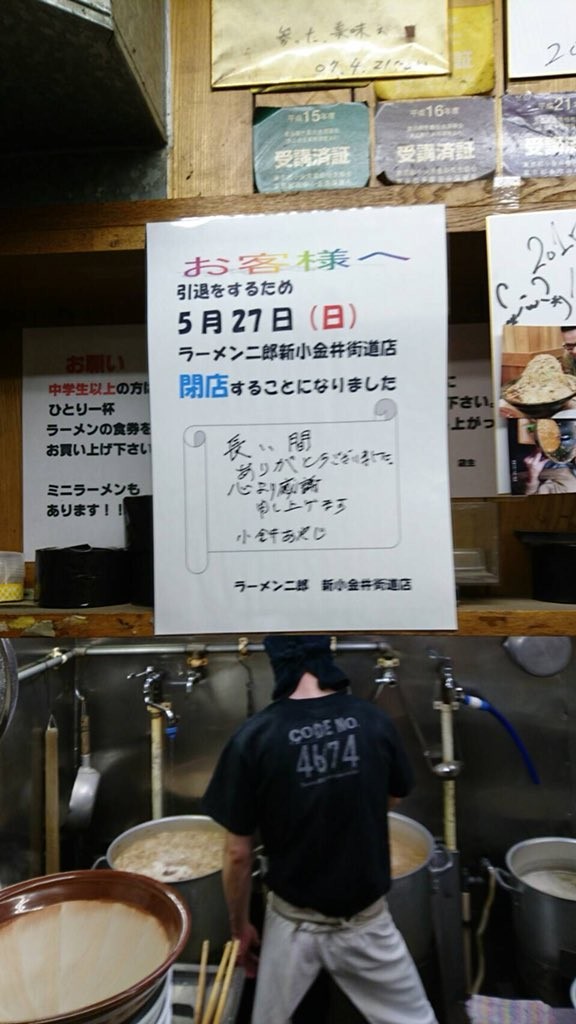 07.4.21
平成15年度
受講済証
平成16年度
受講済証
お客様へ
引退をするため
5月27日(日)
ラーメン二郎新小金井街道店
閉店することになりました
長い間
ありがとうございました
心より感謝
申し上げます
小金井あやじ
ラーメン二郎 新小金井街道店
お願い
中学生以上の方は
ひとり一杯
ラーメンの食券を
お買い上げ下さい
ミニラーメンも
あります!!
に
下さい。
上がっ
店主
CODE NO.
4674